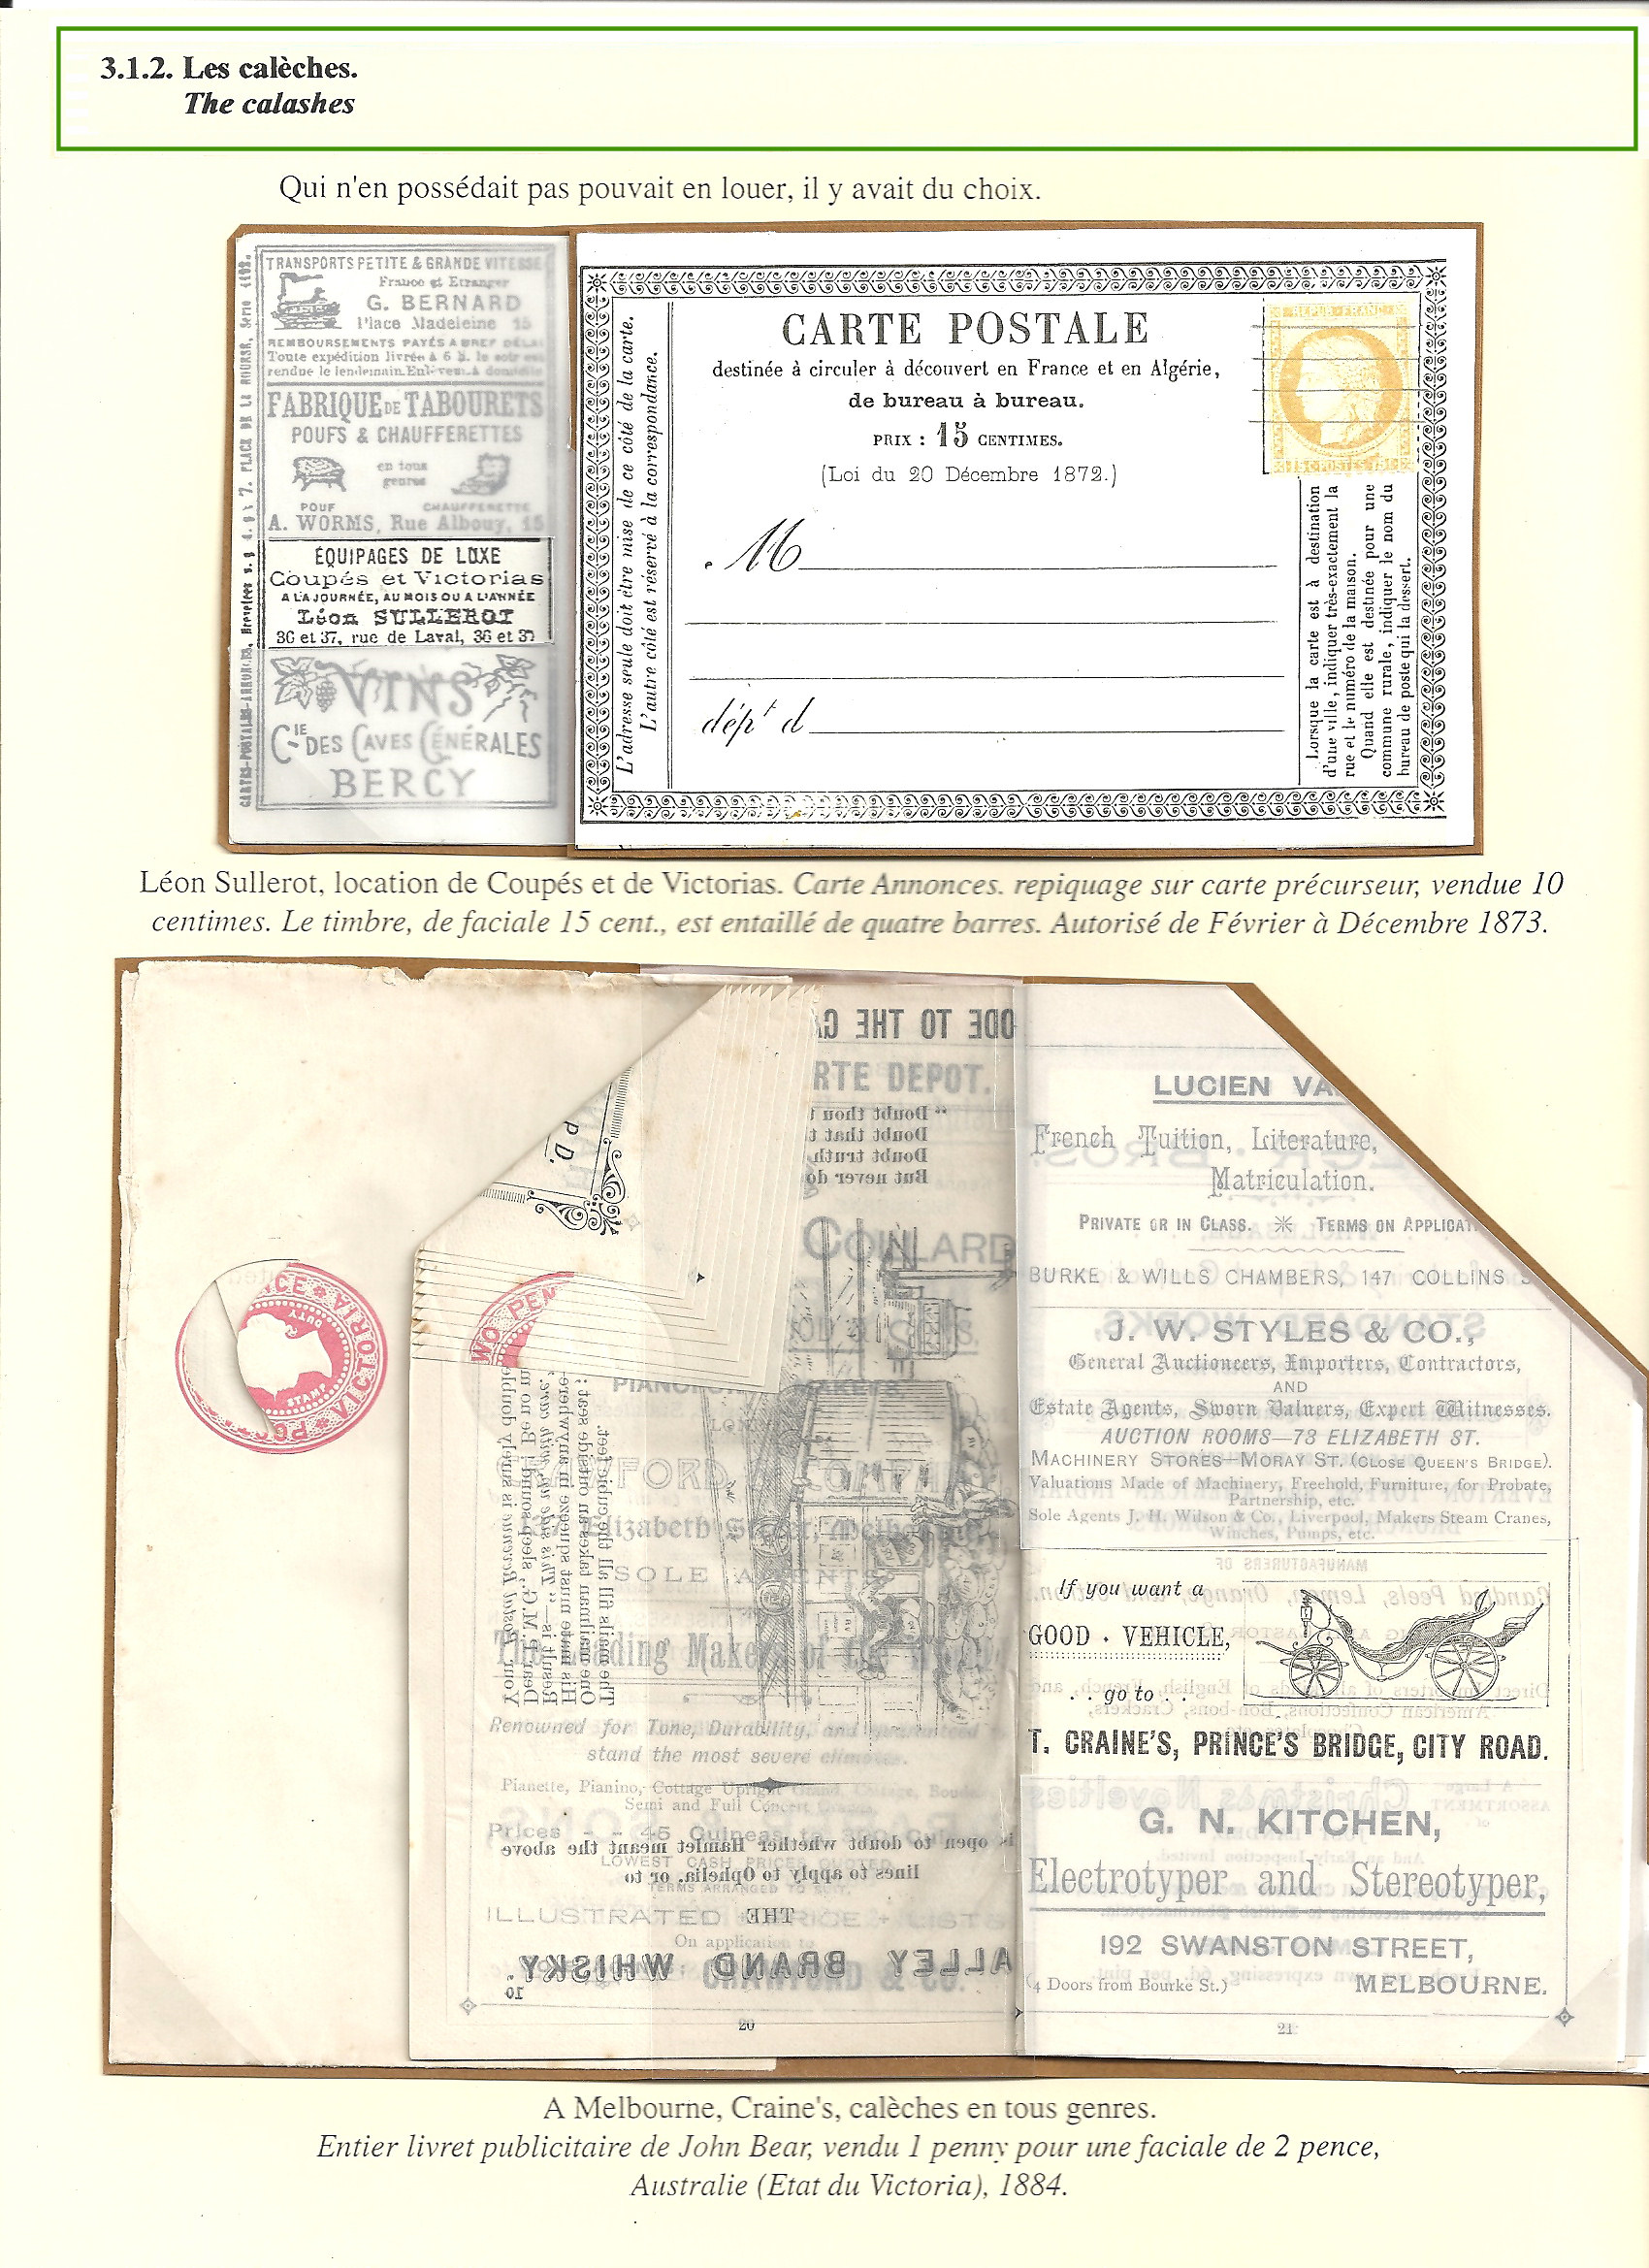 3.1.2. Les calèches.
The calashes
Qui n'en possédait pas pouvait en louer, il y avait du choix.
CARTES-POSTALES-ANNONCES, Brevetées s. g. d. g. 7, PLACE DE LA BOURSE, Serie
TRANSPORTS PETITE & GRANDE VITESSE
France et Etranger
G. BERNARD
Place Madeleine 15
REMBOURSEMENTS PAYÉS A BREF DÉLAI
Toute expédition livrée à 6 h. le soir est
rendue le lendemain. Enlèvem. à domicile
FABRIQUE DE TABOURETS
POUFS & CHAUFFERETTES
en tous
genres
POUF
CHAUFFERETTE
A. WORMS, Rue Albouy, 15
ÉQUIPAGES DE LUXE
Coupés et Victorias
A LA JOURNÉE, AU MOIS OU A L'ANNÉE
Léon SULLEROT
36 et 37, rue de Laval, 36 et 37
VINS
CIE DES CAVES GÉNÉRALES
BERCY
L'adresse seule doit être mise de ce côté de la carte.
L'autre côté est réservé à la correspondance.
CARTE POSTALE
destinée à circuler à découvert en France et en Algérie,
de bureau à bureau.
PRIX : 15 CENTIMES.
(Loi du 20 Décembre 1872.)
M
dépt d
REPUB FRANC
15 C POSTES 15 C
Lorsque la carte est à destination
d'une ville, indiquer très-exactement la
rue et le numéro de la maison.
Quand elle est destinée pour une
commune rurale, indiquer le nom du
bureau de poste qui la dessert.
Léon Sullerot, location de Coupés et de Victorias. Carte Annonces. repiquage sur carte précurseur, vendue 10
centimes. Le timbre, de faciale 15 cent., est entaillé de quatre barres. Autorisé de Février à Décembre 1873.
VICTORIA
STAMP
DUTY
P D.
WO PEN
ODE TO THE
RTE DEPOT.
"Doubt thou
Doubt that t
Doubt truth
But never do
COINLARD
Your Postal Revenue is surely double
Dear P.M.G., sleep sound! Be no m
Result is—"This side up, with care."
His mate must squeeze in anywhere
One mailman takes an outside seat;
The mails fill all the cubic feet.
Elizabeth
SOLE AGENTS
The Leading Makers of the
Renowned for Tone, Durability, and guaranteed
stand the most severe climates.
Pianette, Pianino, Cottage Upright Grand,
Semi and Full Concert Grands,
Prices - - 45 Guineas to
is open to doubt whether Hamlet meant the above
LOWEST CASH PRICES QUOTED
lines to apply to Ophelia, or to
TERMS ARRANGED TO SUIT.
ILLUSTRATED PRICE LISTS
THE
On application to
ALLEY BRAND WHISKY.
& CO.
10
20
LUCIEN VA
French Tuition, Literature,
Matriculation.
PRIVATE OR IN CLASS. TERMS ON APPLICAT
BURKE & WILLS CHAMBERS, 147 COLLINS S
J. W. STYLES & CO.,
General Auctioneers, Importers, Contractors,
AND
Estate Agents, Sworn Valuers, Expert Witnesses.
AUCTION ROOMS—73 ELIZABETH ST.
MACHINERY STORES—MORAY ST. (CLOSE QUEEN'S BRIDGE).
Valuations Made of Machinery, Freehold, Furniture, for Probate,
Partnership, etc.
Sole Agents J. H. Wilson & Co., Liverpool, Makers Steam Cranes,
Winches, Pumps, etc.
If you want a
GOOD . VEHICLE,
. . go to . .
T. CRAINE'S, PRINCE'S BRIDGE, CITY ROAD.
G. N. KITCHEN,
Electrotyper and Stereotyper,
192 SWANSTON STREET,
(4 Doors from Bourke St.) MELBOURNE.
21
A Melbourne, Craine's, calèches en tous genres.
Entier livret publicitaire de John Bear, vendu 1 penny pour une faciale de 2 pence,
Australie (Etat du Victoria), 1884.